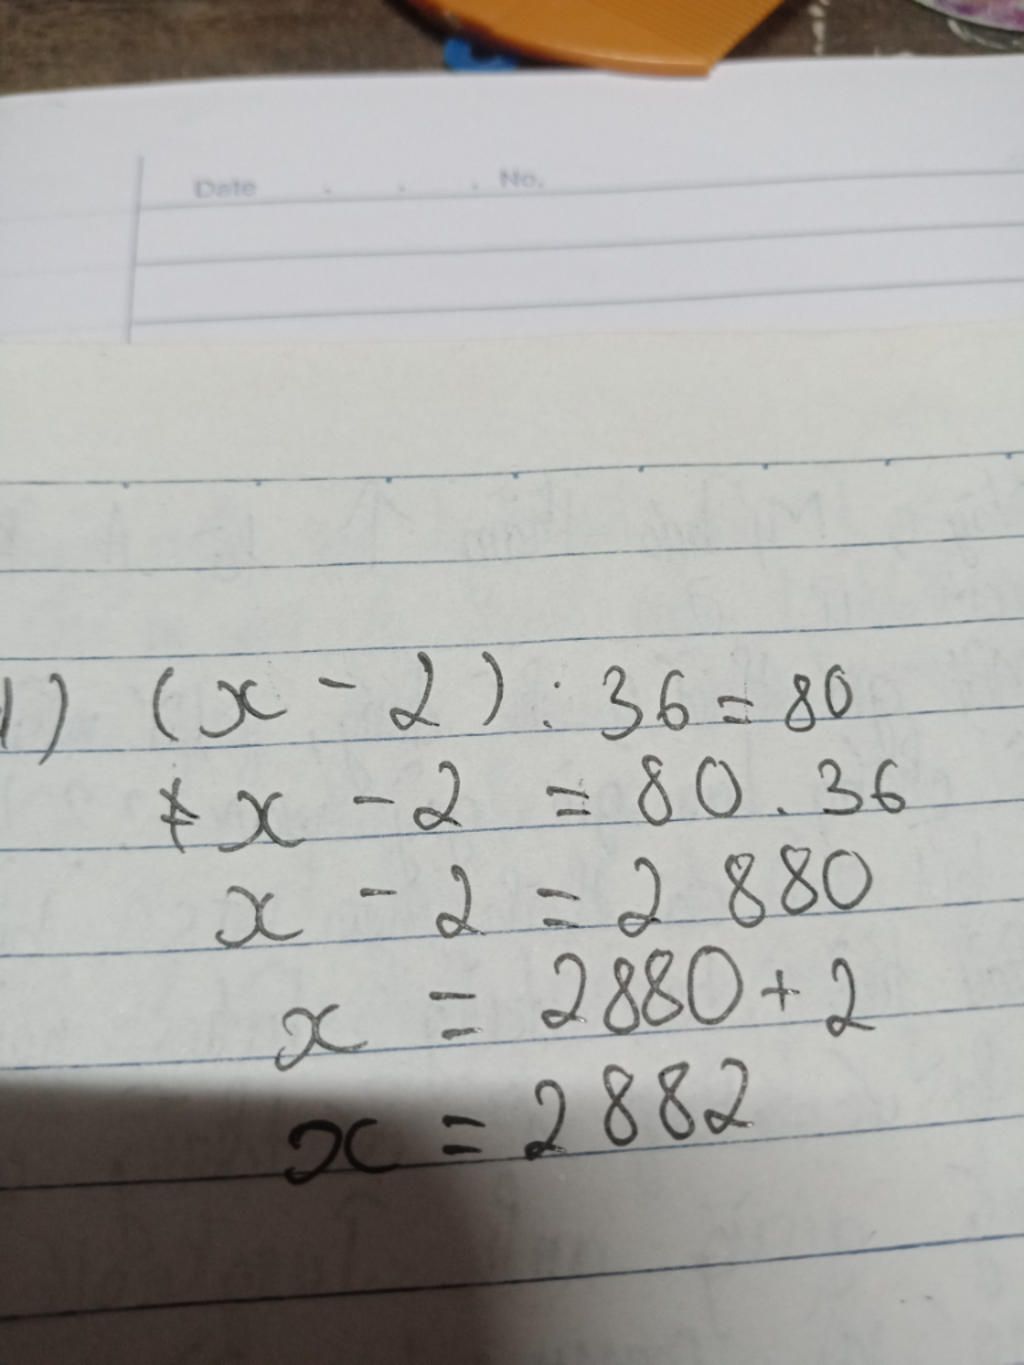 Date . . . No.
1) (x - 2) : 36 = 80
x - 2 = 80 . 36
x - 2 = 2 880
x = 2880 + 2
x = 2882